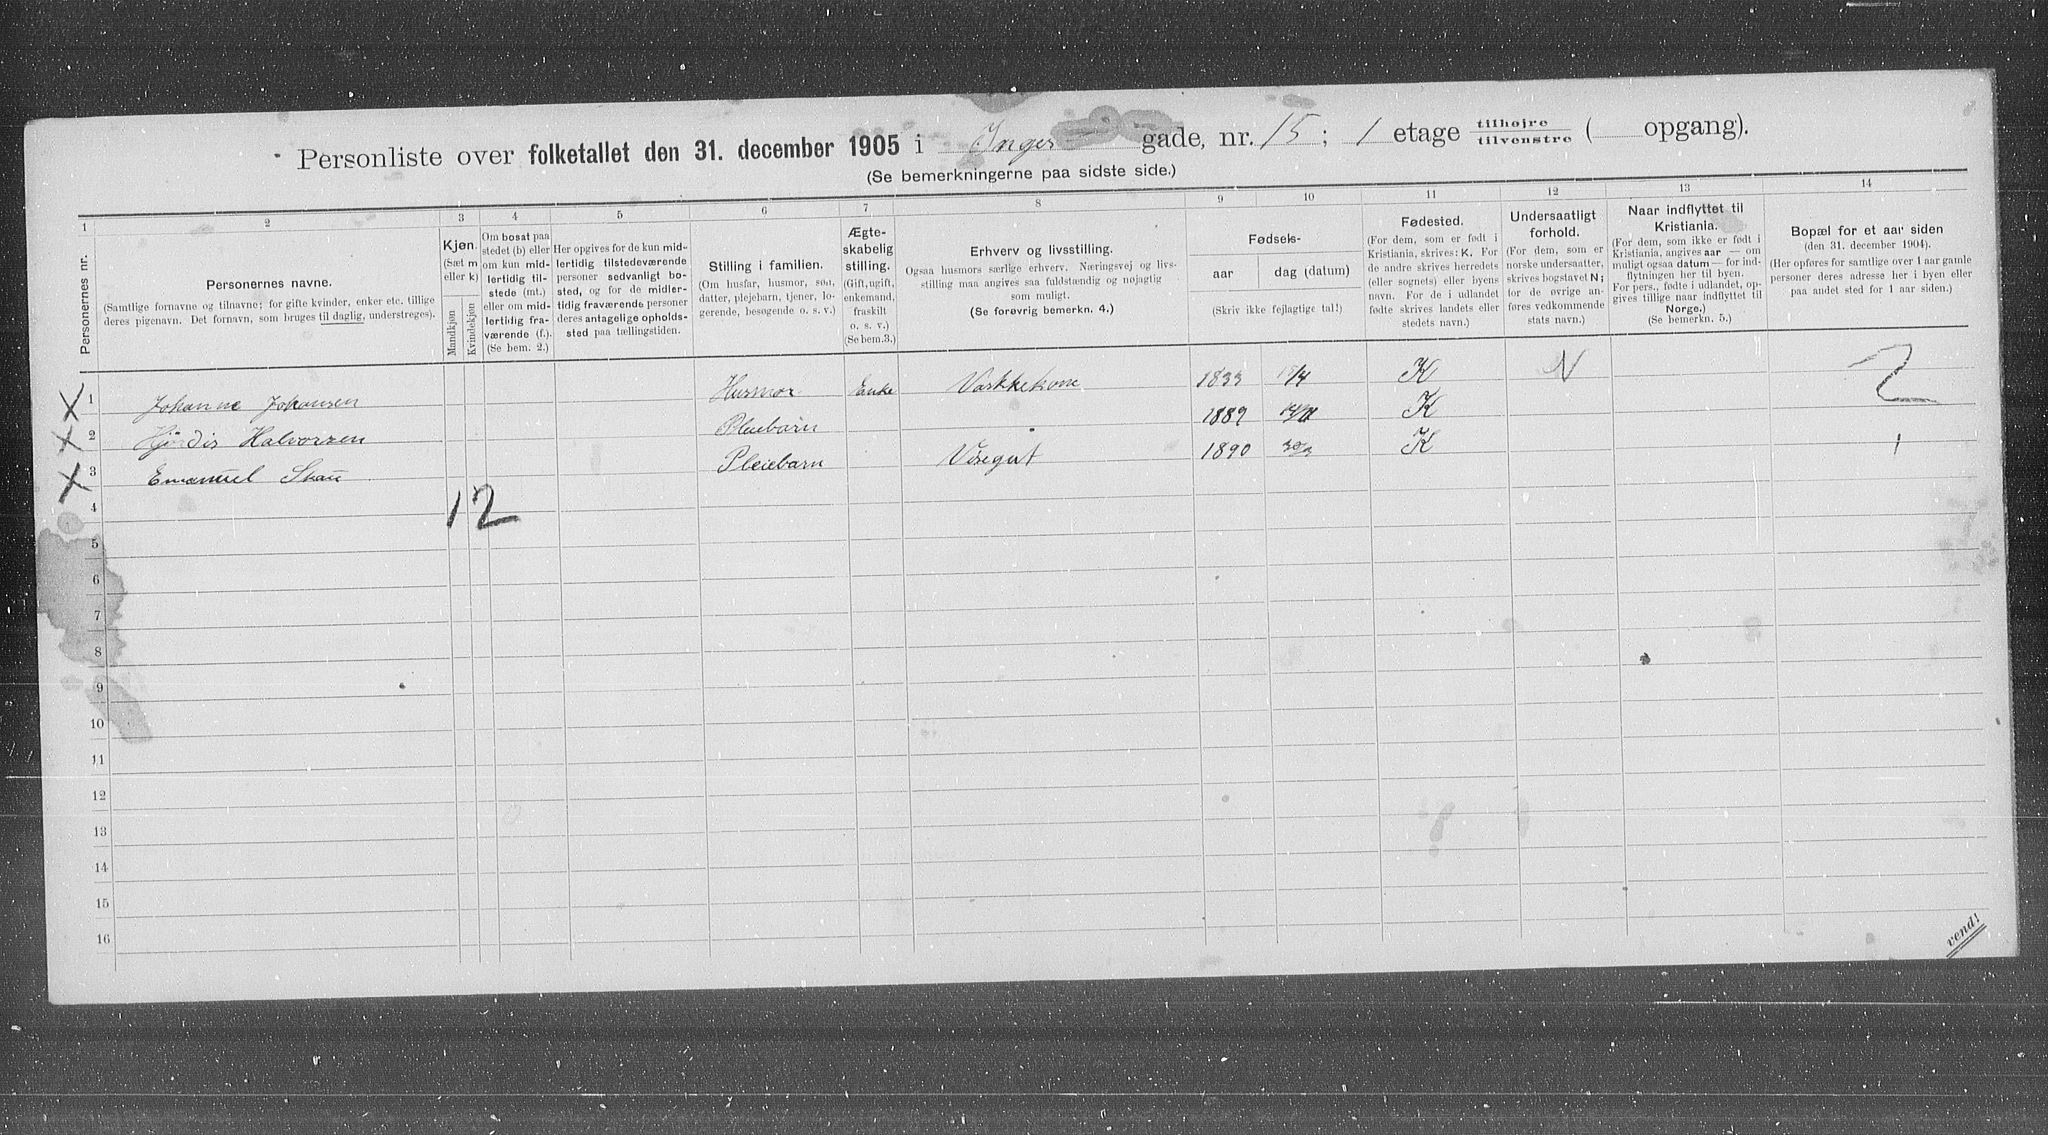 Personliste over folketallet den 31. december 1905 i Inges gade, nr. 15; 1 etage tilhøjre tilvenstre ( opgang).
(Se bemerkningerne paa sidste side.)
1 2 3 4 5 6 7 8 9 10 11 12 13 14
Personernes nr.
Personernes navne.
(Samtlige fornavne og tilnavne; for gifte kvinder, enker etc. tillige
deres pigenavn. Det fornavn, som bruges til daglig, understreges).
Kjøn.
(Sæt m
eller k)
Mandkjøn
Kvindekjøn
Om bosat paa
stedet (b) eller
om kun mid-
lertidig til-
stede (mt.)
eller om mid-
lertidig fra-
værende (f.).
(Se bem. 2.)
Her opgives for de kun mid-
lertidig tilstedeværende
personer sedvanligt bo-
sted, og for de midler-
tidig fraværende personer
deres antagelige opholds-
sted paa tællingstiden.
Stilling i familien.
(Om husfar, husmor, søn,
datter, plejebarn, tjener, lo-
gerende, besøgende o. s. v.)
Ægte-
skabelig
stilling.
(Gift, ugift,
enkemand,
fraskilt
o. s. v.)
(Se bem.3.)
Erhverv og livsstilling.
Ogsaa husmors særlige erhverv. Næringsvej og livs-
stilling maa angives saa fuldstændig og nøjagtig
som muligt.
(Se forøvrig bemerkn. 4.)
Fødsels-
aar dag (datum)
(Skriv ikke fejlagtige tal!)
Fødested.
(For dem, som er født i
Kristiania, skrives: K. For
de andre skrives herredets
(eller sognets) eller byens
navn. For de i udlandet
fødte skrives landets eller
stedets navn.)
Undersaatligt
forhold.
(For dem, som er
norske undersaatter,
skrives bogstavet N;
for de øvrige an-
føres vedkommende
stats navn.)
Naar indflyttet til
Kristiania.
(For dem, som ikke er født i
Kristiania, angives aar
muligt ogsaa datum — for ind-
flytningen her til byen.
For pers., fødte i udlandet, op-
gives tillige naar indflyttet til
Norge.)
(Se bemerkn. 5.)
Bopæl for et aar siden
(den 31. december 1904).
(Her opføres for samtlige over 1 aar gamle
personer deres adresse her i byen eller
paa andet sted for 1 aar siden.)
X 1 Johanne Johansen Husmor Enke Vaskkekone K N 2
X 2 Hjørdis Halvorsen Pleiebarn 1889 K
X 3 Emanuel Skau Pleiebarn Visegut 1890 K 1
4 12
5
6
7
8
9
10
11
12
13
14
15
16
vend!